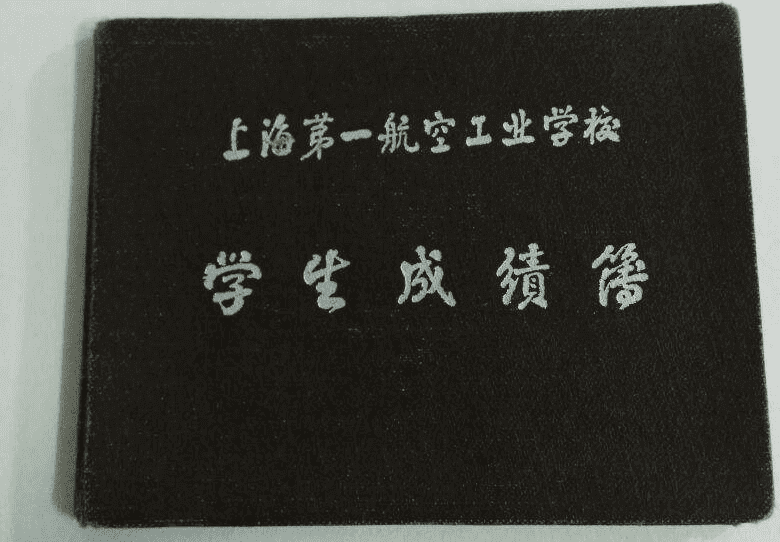 上海第一航空工业学校
学生成绩簿